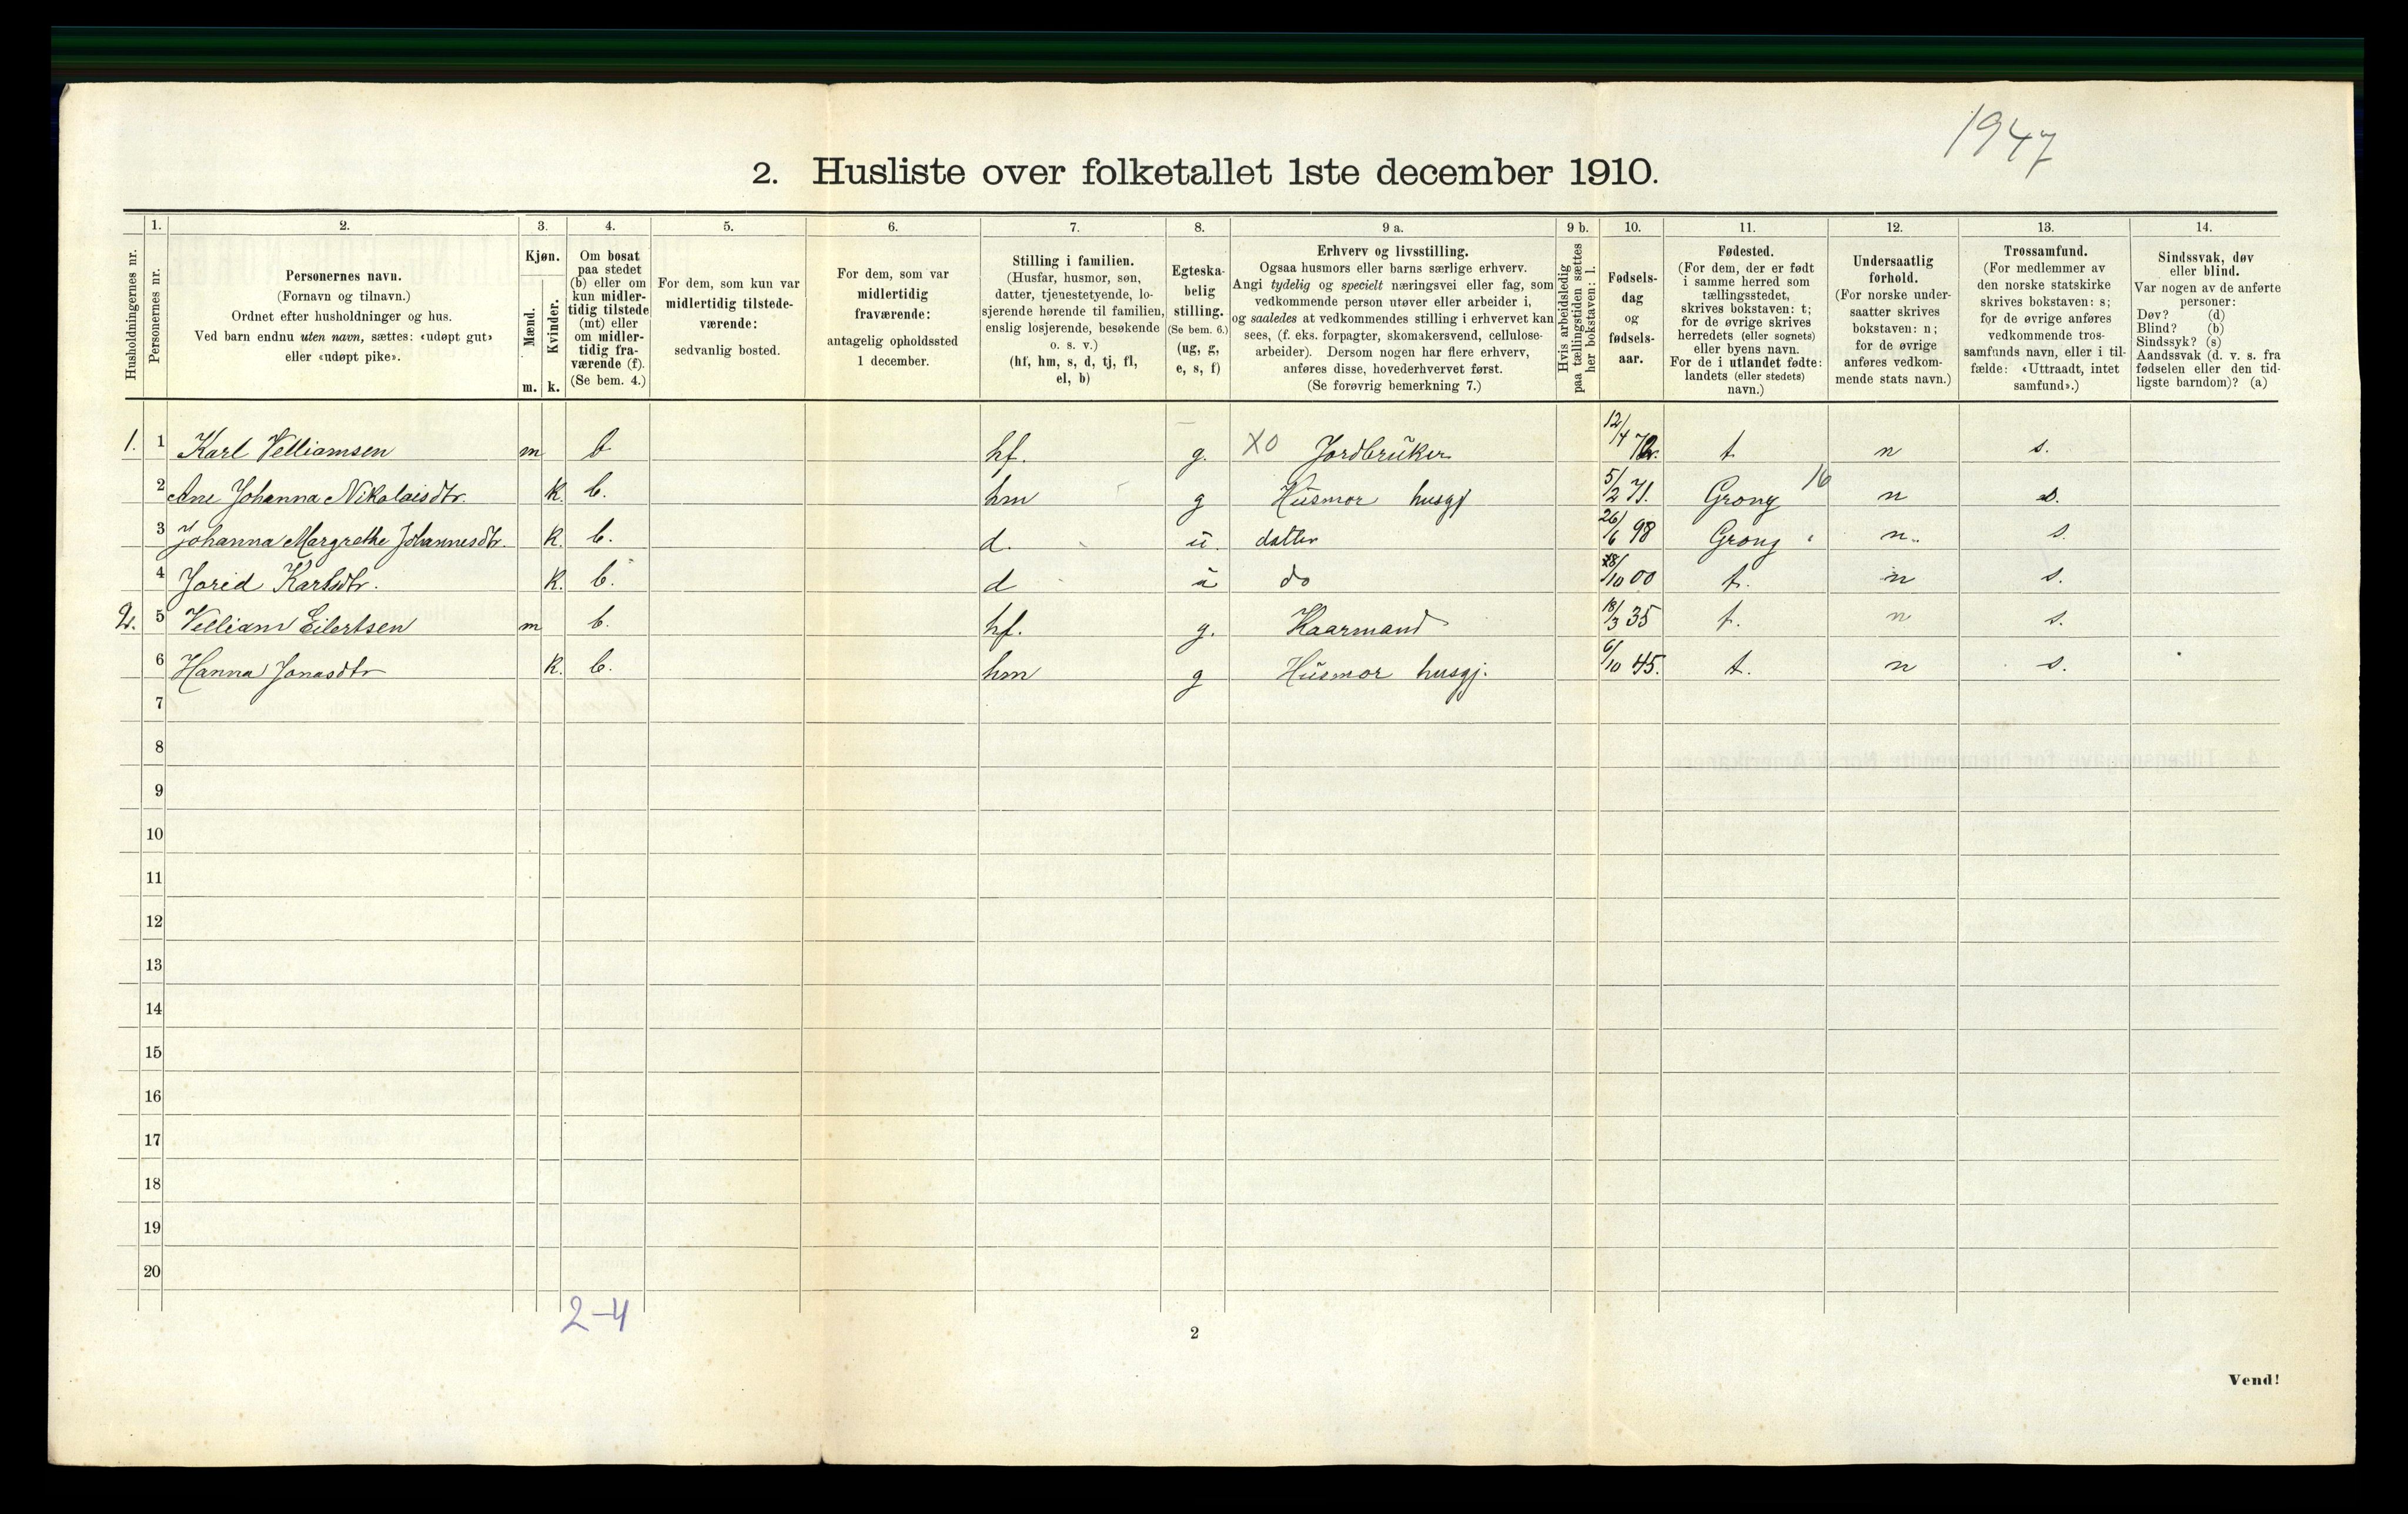 1947
2. Husliste over folketallet 1ste december 1910.
1. 2. 3. 4. 5. 6. 7. 8. 9 a. 9 b. 10. 11. 12. 13. 14.
Husholdningernes nr.
Personernes nr.
Personernes navn.
(Fornavn og tilnavn.)
Ordnet efter husholdninger og hus.
Ved barn endnu uten navn, sættes: «udøpt gut»
eller «udøpt pike».
Kjøn.
Mænd.
Kvinder.
m. k.
Om bosat
paa stedet
(b) eller om
kun midler-
tidig tilstede
(mt) eller
om midler-
tidig fra-
værende (f).
(Se bem. 4.)
For dem, som kun var
midlertidig tilstede-
værende:
sedvanlig bosted.
For dem, som var
midlertidig
fraværende:
antagelig opholdssted
1 december.
Stilling i familien.
(Husfar, husmor, søn,
datter, tjenestetyende, lo-
sjerende hørende til familien,
enslig losjerende, besøkende
o. s. v.)
(hf, hm, s, d, tj, fl,
el, b)
Egteska-
belig
stilling.
(Se bem. 6.)
(ug, g,
e, s, f)
Erhverv og livsstilling.
Ogsaa husmors eller barns særlige erhverv.
Angi tydelig og specielt næringsvei eller fag, som
vedkommende person utøver eller arbeider i,
og saaledes at vedkommendes stilling i erhvervet kan
sees, (f. eks. forpagter, skomakersvend, cellulose-
arbeider). Dersom nogen har flere erhverv,
anføres disse, hovederhvervet først.
(Se forøvrig bemerkning 7.)
Hvis arbeidsledig
paa tællingstiden sættes
her bokstaven: l.
Fødsels-
dag
og
fødsels-
aar.
Fødested.
(For dem, der er født
i samme herred som
tællingsstedet,
skrives bokstaven: t;
for de øvrige skrives
herredets (eller sognets)
eller byens navn.
For de i utlandet fødte:
landets (eller stedets)
navn.)
Undersaatlig
forhold.
(For norske under-
saatter skrives
bokstaven: n;
for de øvrige
anføres vedkom-
mende stats navn.)
Trossamfund.
(For medlemmer av
den norske statskirke
skrives bokstaven: s;
for de øvrige anføres
vedkommende tros-
samfunds navn, eller i til-
fælde: «Uttraadt, intet
samfund».)
Sindssvak, døv
eller blind.
Var nogen av de anførte
personer:
Døv? (d)
Blind? (b)
Sindssyk? (s)
Aandssvak (d. v. s. fra
fødselen eller den tid-
ligste barndom)? (a)
1. 1 Karl Velliamsen m b hf. g. X0 Jordbruker 12/4 72. t n s.
2 Ane Johanna Nikolaisdtr. k. b. hm g Husmor husgj 5/2 71. Grong 16 n s.
3 Johanna Margrethe Johannesdtr. k. b. d. u. datter 26/6 98 Grong n. s.
4 Jorid Karlsdtr. k. b. d u do 28/10 00 t. n s.
2. 5 Velliam Eilertsen m b. hf. g. Kaarmand 18/3 35 t. n s.
6 Hanna Jonasdtr k. b. hm g Husmor husgj. 6/10 45. t. n s.
7
8
9
10
11
12
13
14
15
16
17
18
19
20
2-4
2
Vend!